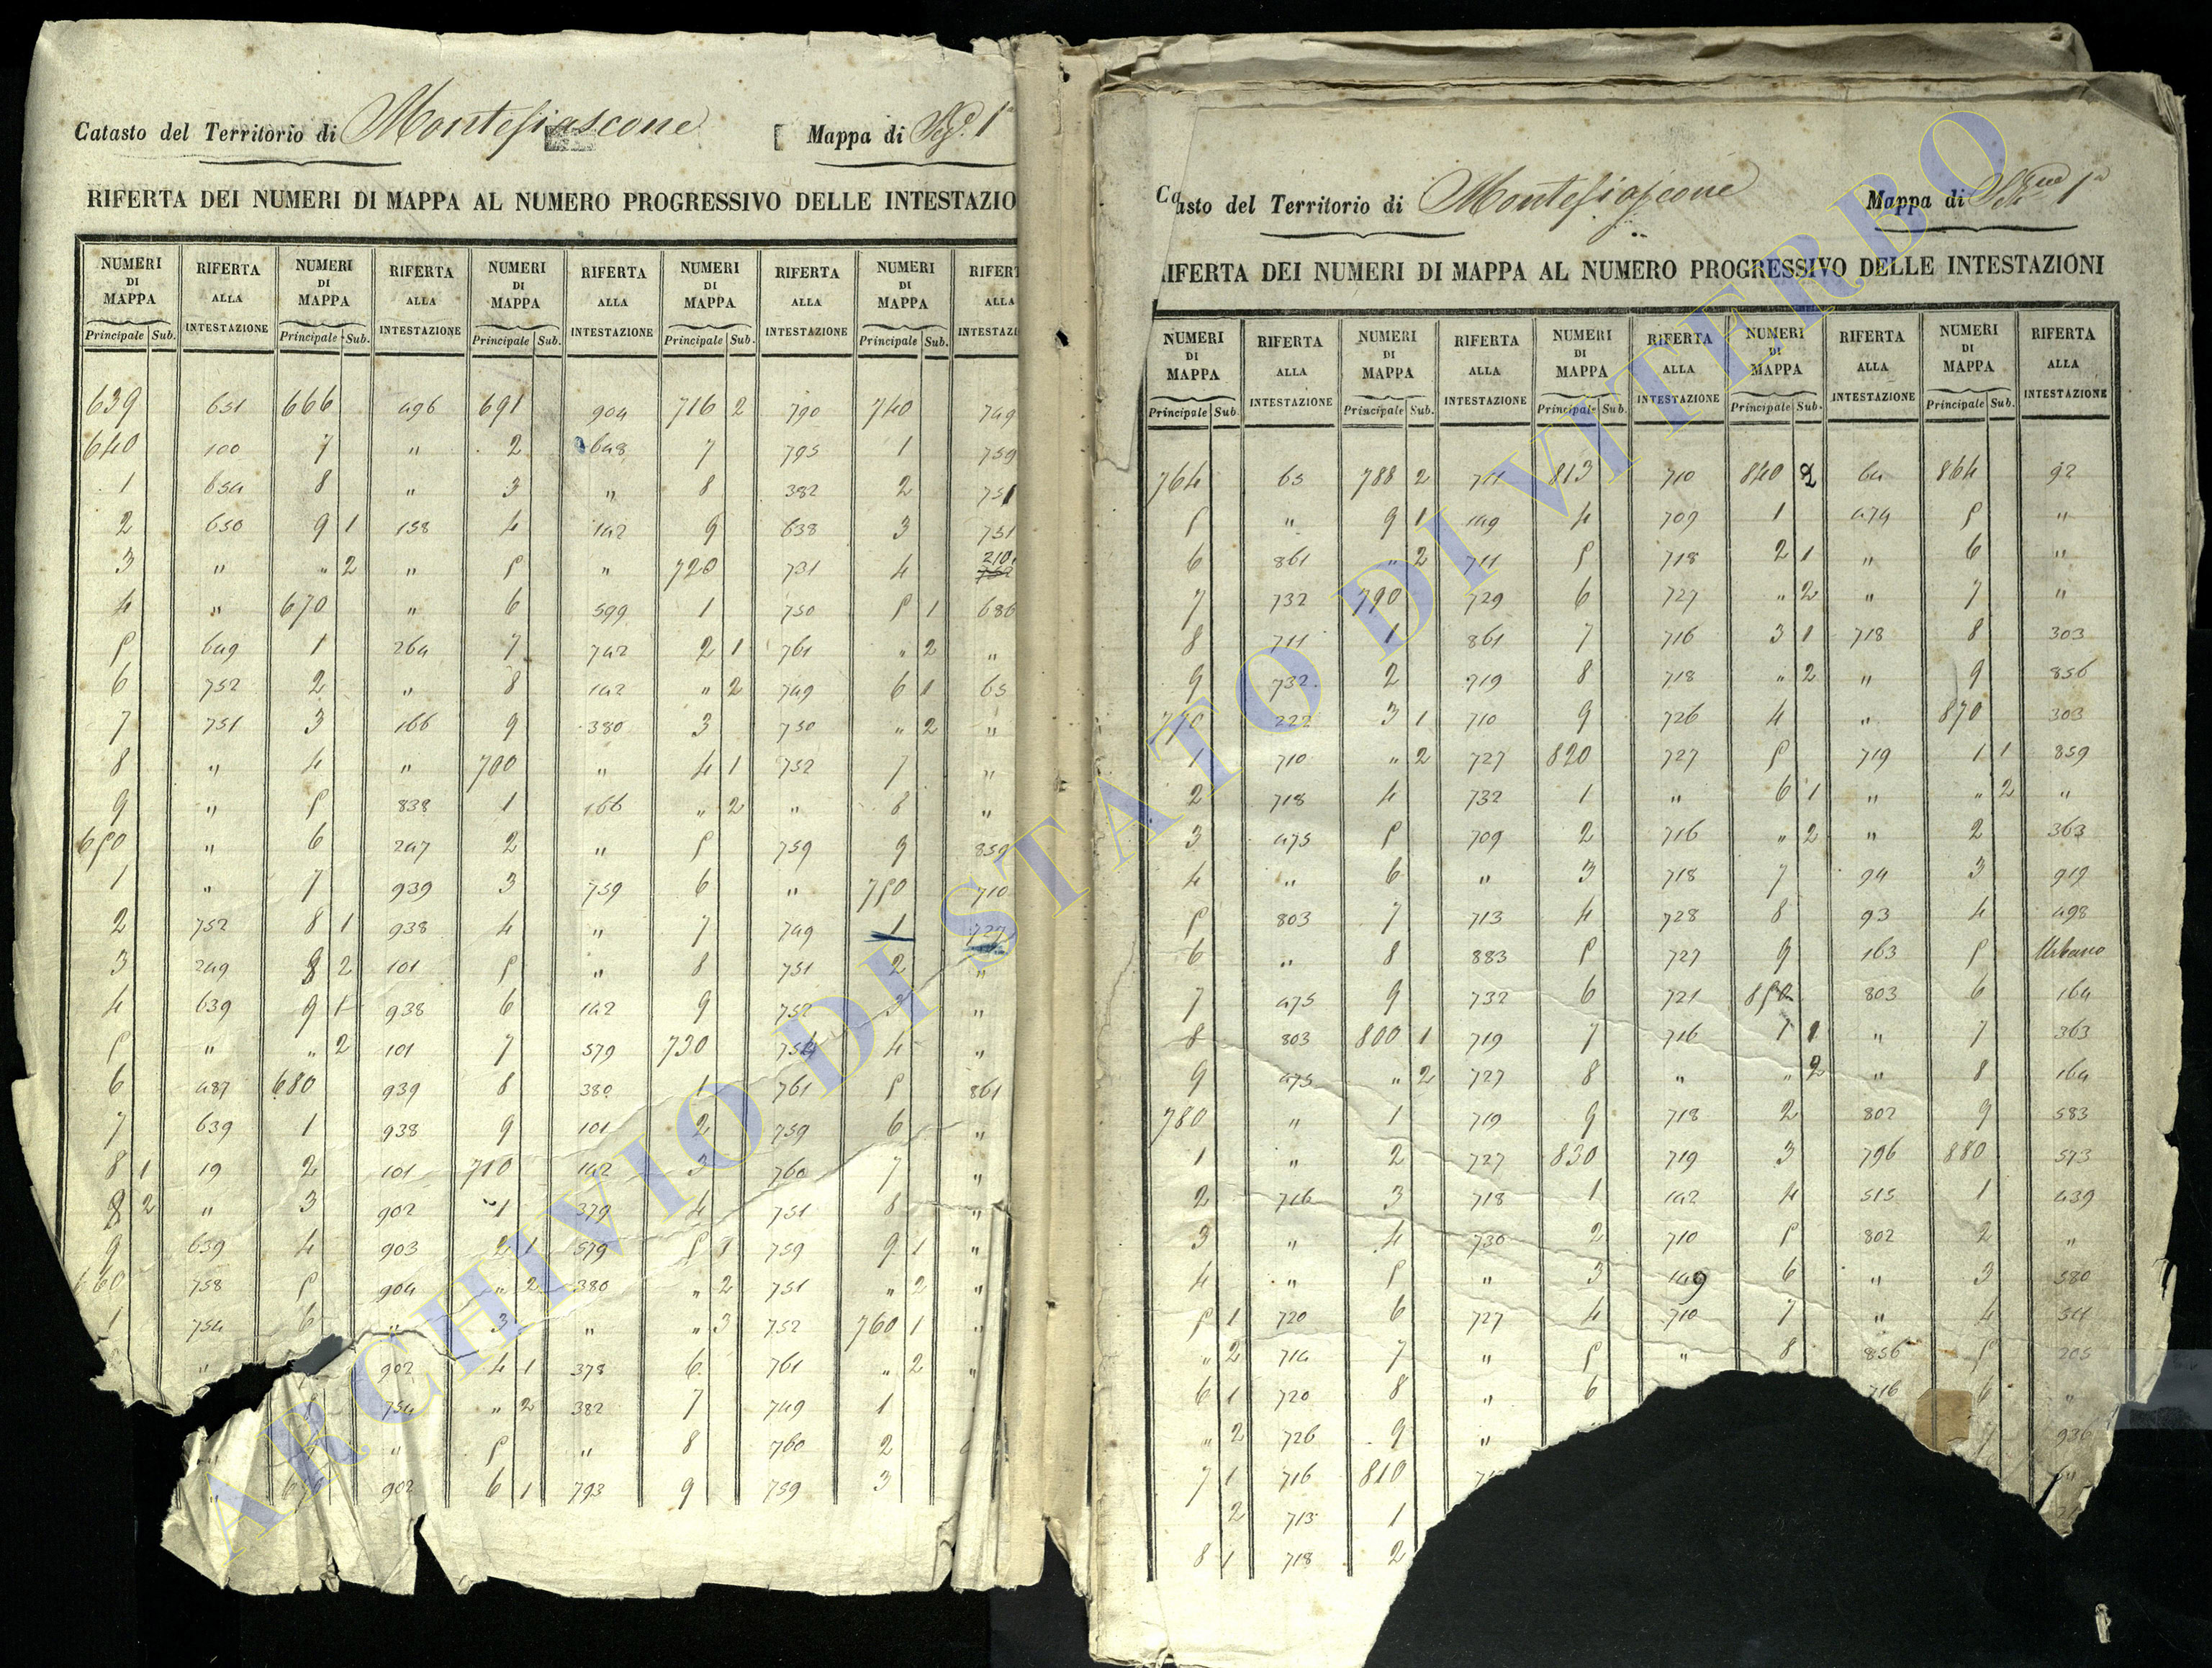 Catasto del Territorio di Montefiascone Mappa di Sez.e 1a
RIFERTA DEI NUMERI DI MAPPA AL NUMERO PROGRESSIVO DELLE INTESTAZIO
NUMERI DI MAPPA RIFERTA ALLA INTESTAZIONE NUMERI DI MAPPA RIFERTA ALLA INTESTAZIONE NUMERI DI MAPPA RIFERTA ALLA INTESTAZIONE NUMERI DI MAPPA RIFERTA ALLA INTESTAZIONE NUMERI DI MAPPA RIFERT ALLA INTESTAZI
Principale Sub. Principale Sub. Principale Sub. Principale Sub. Principale Sub.
639 651 666 496 691 904 716 2 790 740 749
640 100 7 " 2 648 7 795 1 759
1 654 8 " 3 " 8 382 2 751
2 650 9 1 158 4 142 9 638 3 751
3 " " 2 " 5 " 720 731 4 210
4 " 670 " 6 599 1 750 5 1 686
5 649 1 264 7 742 2 1 761 " 2 "
6 752 2 " 8 142 " 2 749 6 1 65
7 751 3 166 9 380 3 750 " 2 "
8 " 4 " 700 " 4 1 752 7 "
9 " 5 838 1 166 " 2 " 8 "
650 " 6 247 2 " 5 759 9 859
1 " 7 939 3 759 6 " 750 710
2 752 8 1 938 4 " 7 749 1 727
3 249 8 2 101 5 " 8 751 2 "
4 639 9 1 938 6 142 9 752 3 "
5 " " 2 101 7 579 730 754 4 "
6 487 680 939 8 380 1 761 5 861
7 639 1 938 9 101 2 759 6 "
8 1 19 2 101 710 142 3 760 7 "
8 2 " 3 902 1 379 4 751 8 "
9 639 4 903 2 1 579 5 1 759 9 1 "
660 758 5 904 " 2 380 " 2 751 " 2 "
1 754 6 " 3 " " 3 752 760 1 "
" 902 4 1 378 6 761 " 2 "
8 754 " 2 382 7 749 1
" 5 " 8 760 2
" 690 902 6 1 793 9 759 3
Catasto del Territorio di Montefiascone Mappa di Sez.ne 1a
RIFERTA DEI NUMERI DI MAPPA AL NUMERO PROGRESSIVO DELLE INTESTAZIONI
NUMERI DI MAPPA RIFERTA ALLA INTESTAZIONE NUMERI DI MAPPA RIFERTA ALLA INTESTAZIONE NUMERI DI MAPPA RIFERTA ALLA INTESTAZIONE NUMERI DI MAPPA RIFERTA ALLA INTESTAZIONE NUMERI DI MAPPA RIFERTA ALLA INTESTAZIONE
Principale Sub. Principale Sub. Principale Sub. Principale Sub. Principale Sub.
764 65 788 2 711 813 710 840 2 64 864 92
5 " 9 1 149 4 709 1 474 5 "
6 861 " 2 711 5 718 2 1 " 6 "
7 732 790 729 6 727 " 2 " 7 "
8 711 1 861 7 716 3 1 718 8 303
9 732 2 719 8 718 " 2 " 9 856
770 222 3 1 710 9 726 4 " 870 303
1 710 " 2 727 820 727 5 719 1 1 859
2 718 4 732 1 " 6 1 " " 2 "
3 475 5 709 2 716 " 2 " 2 363
4 " 6 " 3 718 7 94 3 919
5 803 7 713 4 728 8 93 4 498
6 " 8 883 5 727 9 163 5 Urbano
7 475 9 732 6 721 850 803 6 164
8 803 800 1 719 7 716 1 1 " 7 363
9 475 " 2 727 8 " " 2 " 8 164
780 " 1 719 9 718 2 802 9 583
1 " 2 727 830 719 3 796 880 573
2 716 3 718 1 142 4 515 1 439
3 " 4 730 2 710 5 802 2 "
4 " 5 " 3 149 6 " 3 580
5 1 720 6 727 4 710 7 " 4 511
" 2 714 7 " 5 " 8 856 5 205
6 1 720 8 " 6 716 6 "
" 2 726 9 " 7 936
7 1 716 810
2 713 1
8 1 718 2
ARCHIVIO DI STATO DI VITERBO